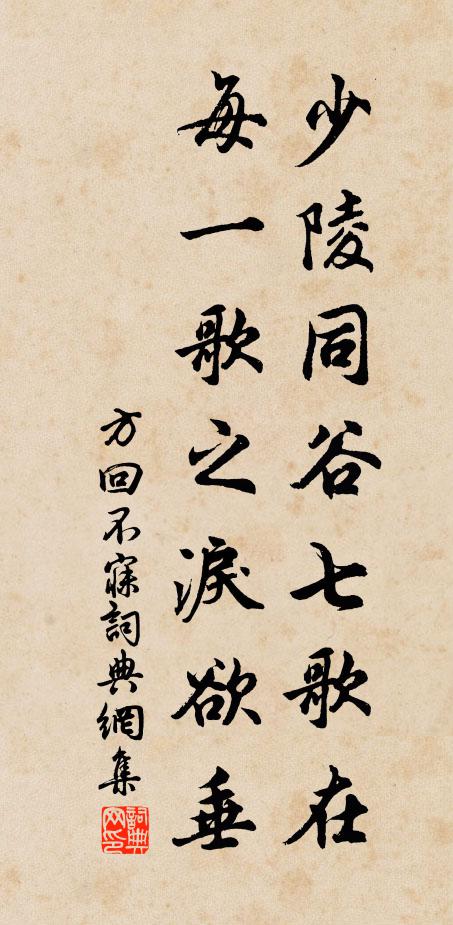 少陵同谷七歌在
每一歌之淚欲垂
方回不寐詞典網集
詞典网印